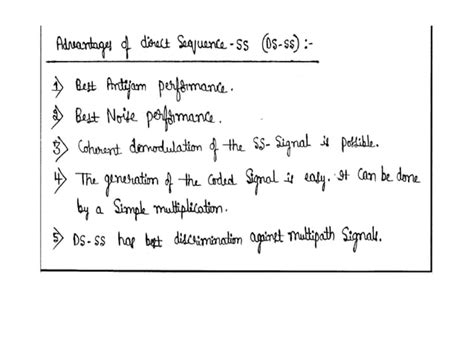 Advantages of direct Sequence-SS (DS-SS) :-
1) Best Antijam performance.
2) Best Noise performance.
3) Coherent demodulation of the SS-Signal is possible.
4) The generation of the coded Signal is easy. It can be done
by a Simple multiplication.
5) DS-SS has best discrimination against multipath Signals.